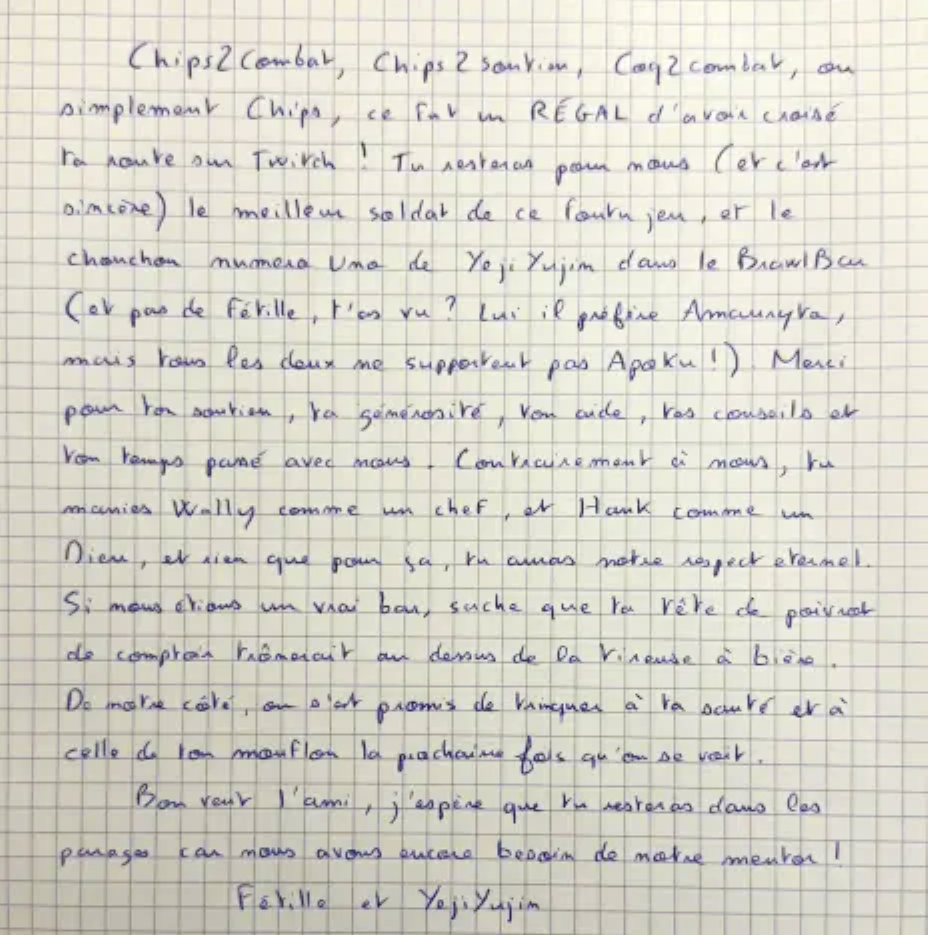 Chips2Combat, Chips2soutien, Coq2combat, ou
simplement Chips, ce fut un RÉGAL d'avoir croisé
ta route sur Twitch ! Tu resteras pour nous (et c'est
sincère) le meilleur soldat de ce foutu jeu, et le
chouchou numero Uno de YejiYujin dans le BrawlBar
(et pas de Fétille, t'as vu ? Lui il préfère Amaunyta,
mais tous les deux ne supportent pas Apoku !) Merci
pour ton soutien, ta générosité, ton aide, tes conseils et
ton temps passé avec nous. Contrairement à nous, tu
manies Wally comme un chef, et Hank comme un
Dieu, et rien que pour ça, tu auras notre respect eternel.
Si nous étions un vrai bar, sache que ta tête de poivrot
de comptoir trônerait au dessus de la tireuse à bière.
De notre côté, on s'est promis de trinquer à ta santé et à
celle de ton mouflon la prochaine fois qu'on se voit.
Bon vent l'ami, j'espère que tu resteras dans les
parages car nous avons encore besoin de notre mentor !
Fétille et YejiYujin